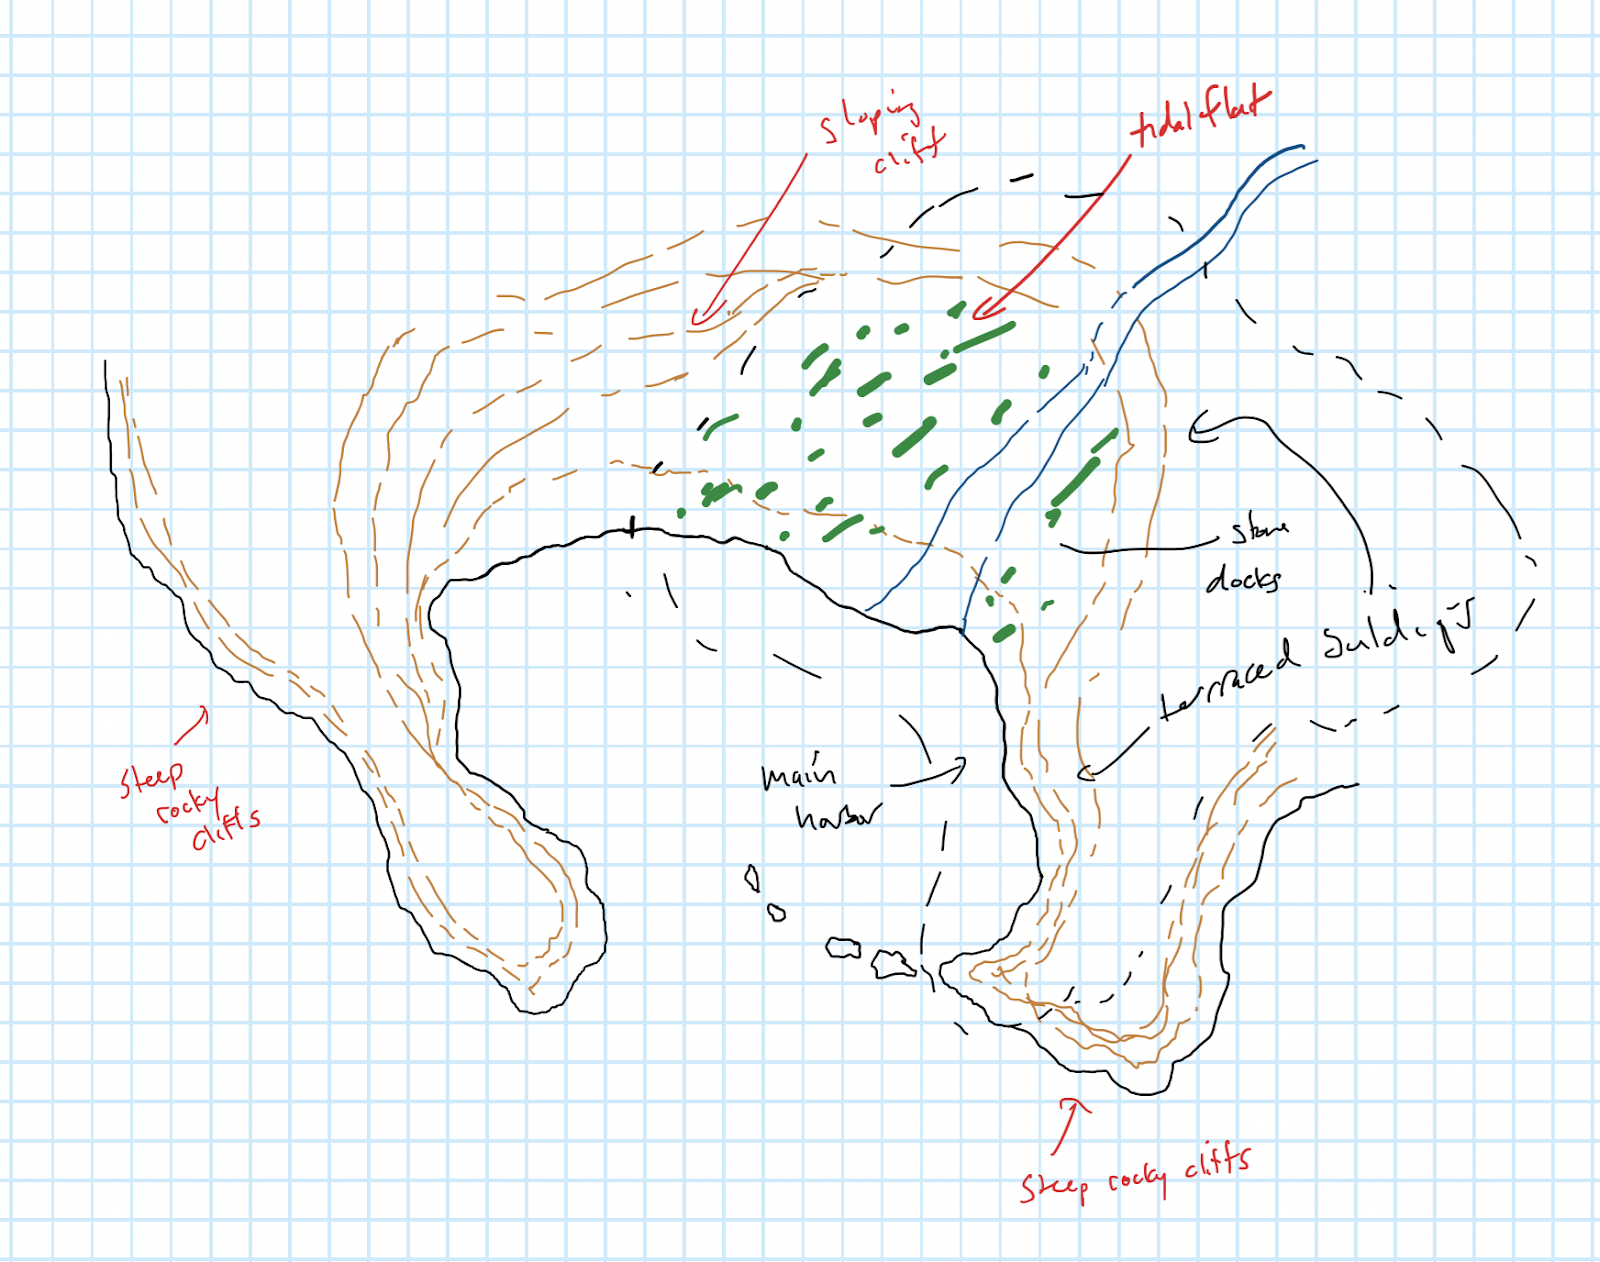 sloping
cliff
tidal flat
stone
docks
terraced buildings
steep
rocky
cliffs
main
harbor
steep rocky cliffs